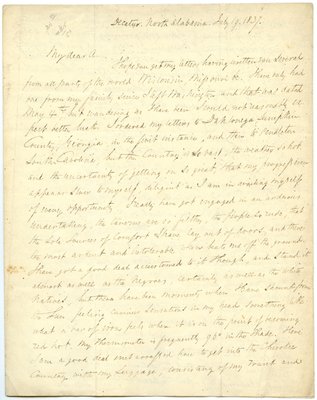 Decatur. North Alabama. July 19. 1837.
My dear A.
I hope you get my letters, having written you several
from all parts of the world Wisconsin Missouri &c. I have only had
one from my family since I left Washington and that was dated
May 4th but wandering as I have been I could not reasonably ex
pect better luck. I ordered my letters to Dahlonega Lumpkin
County, Georgia in the first instance, and then to Pendleton
South Carolina, but the Country is so vast, the weather so hot
and the uncertainty of getting on so great that my progress even
appears slow to myself, diligent as I am in availing myself
of every opportunity. I really have got engaged in an arduous
undertaking, the taverns are so filthy, the people so rude, that
the sole sources of comfort I have lay out of doors, and there
the most ardent and intolerable sun beats me off the ground.
I have got a good deal accustomed to it though, and I stand it
almost as well as the Negroes, certainly as well as the white
Natives, but there have been moments when I have
feeling curious sensations in my head, something like
what a bar of iron feels when it is on the point of becoming
red hot. My Thermometer is frequently 98° in the Shade. I have
been a good deal embarrassed how to get into the Cherokee
Country with my Luggage, consisting of my Trunk and